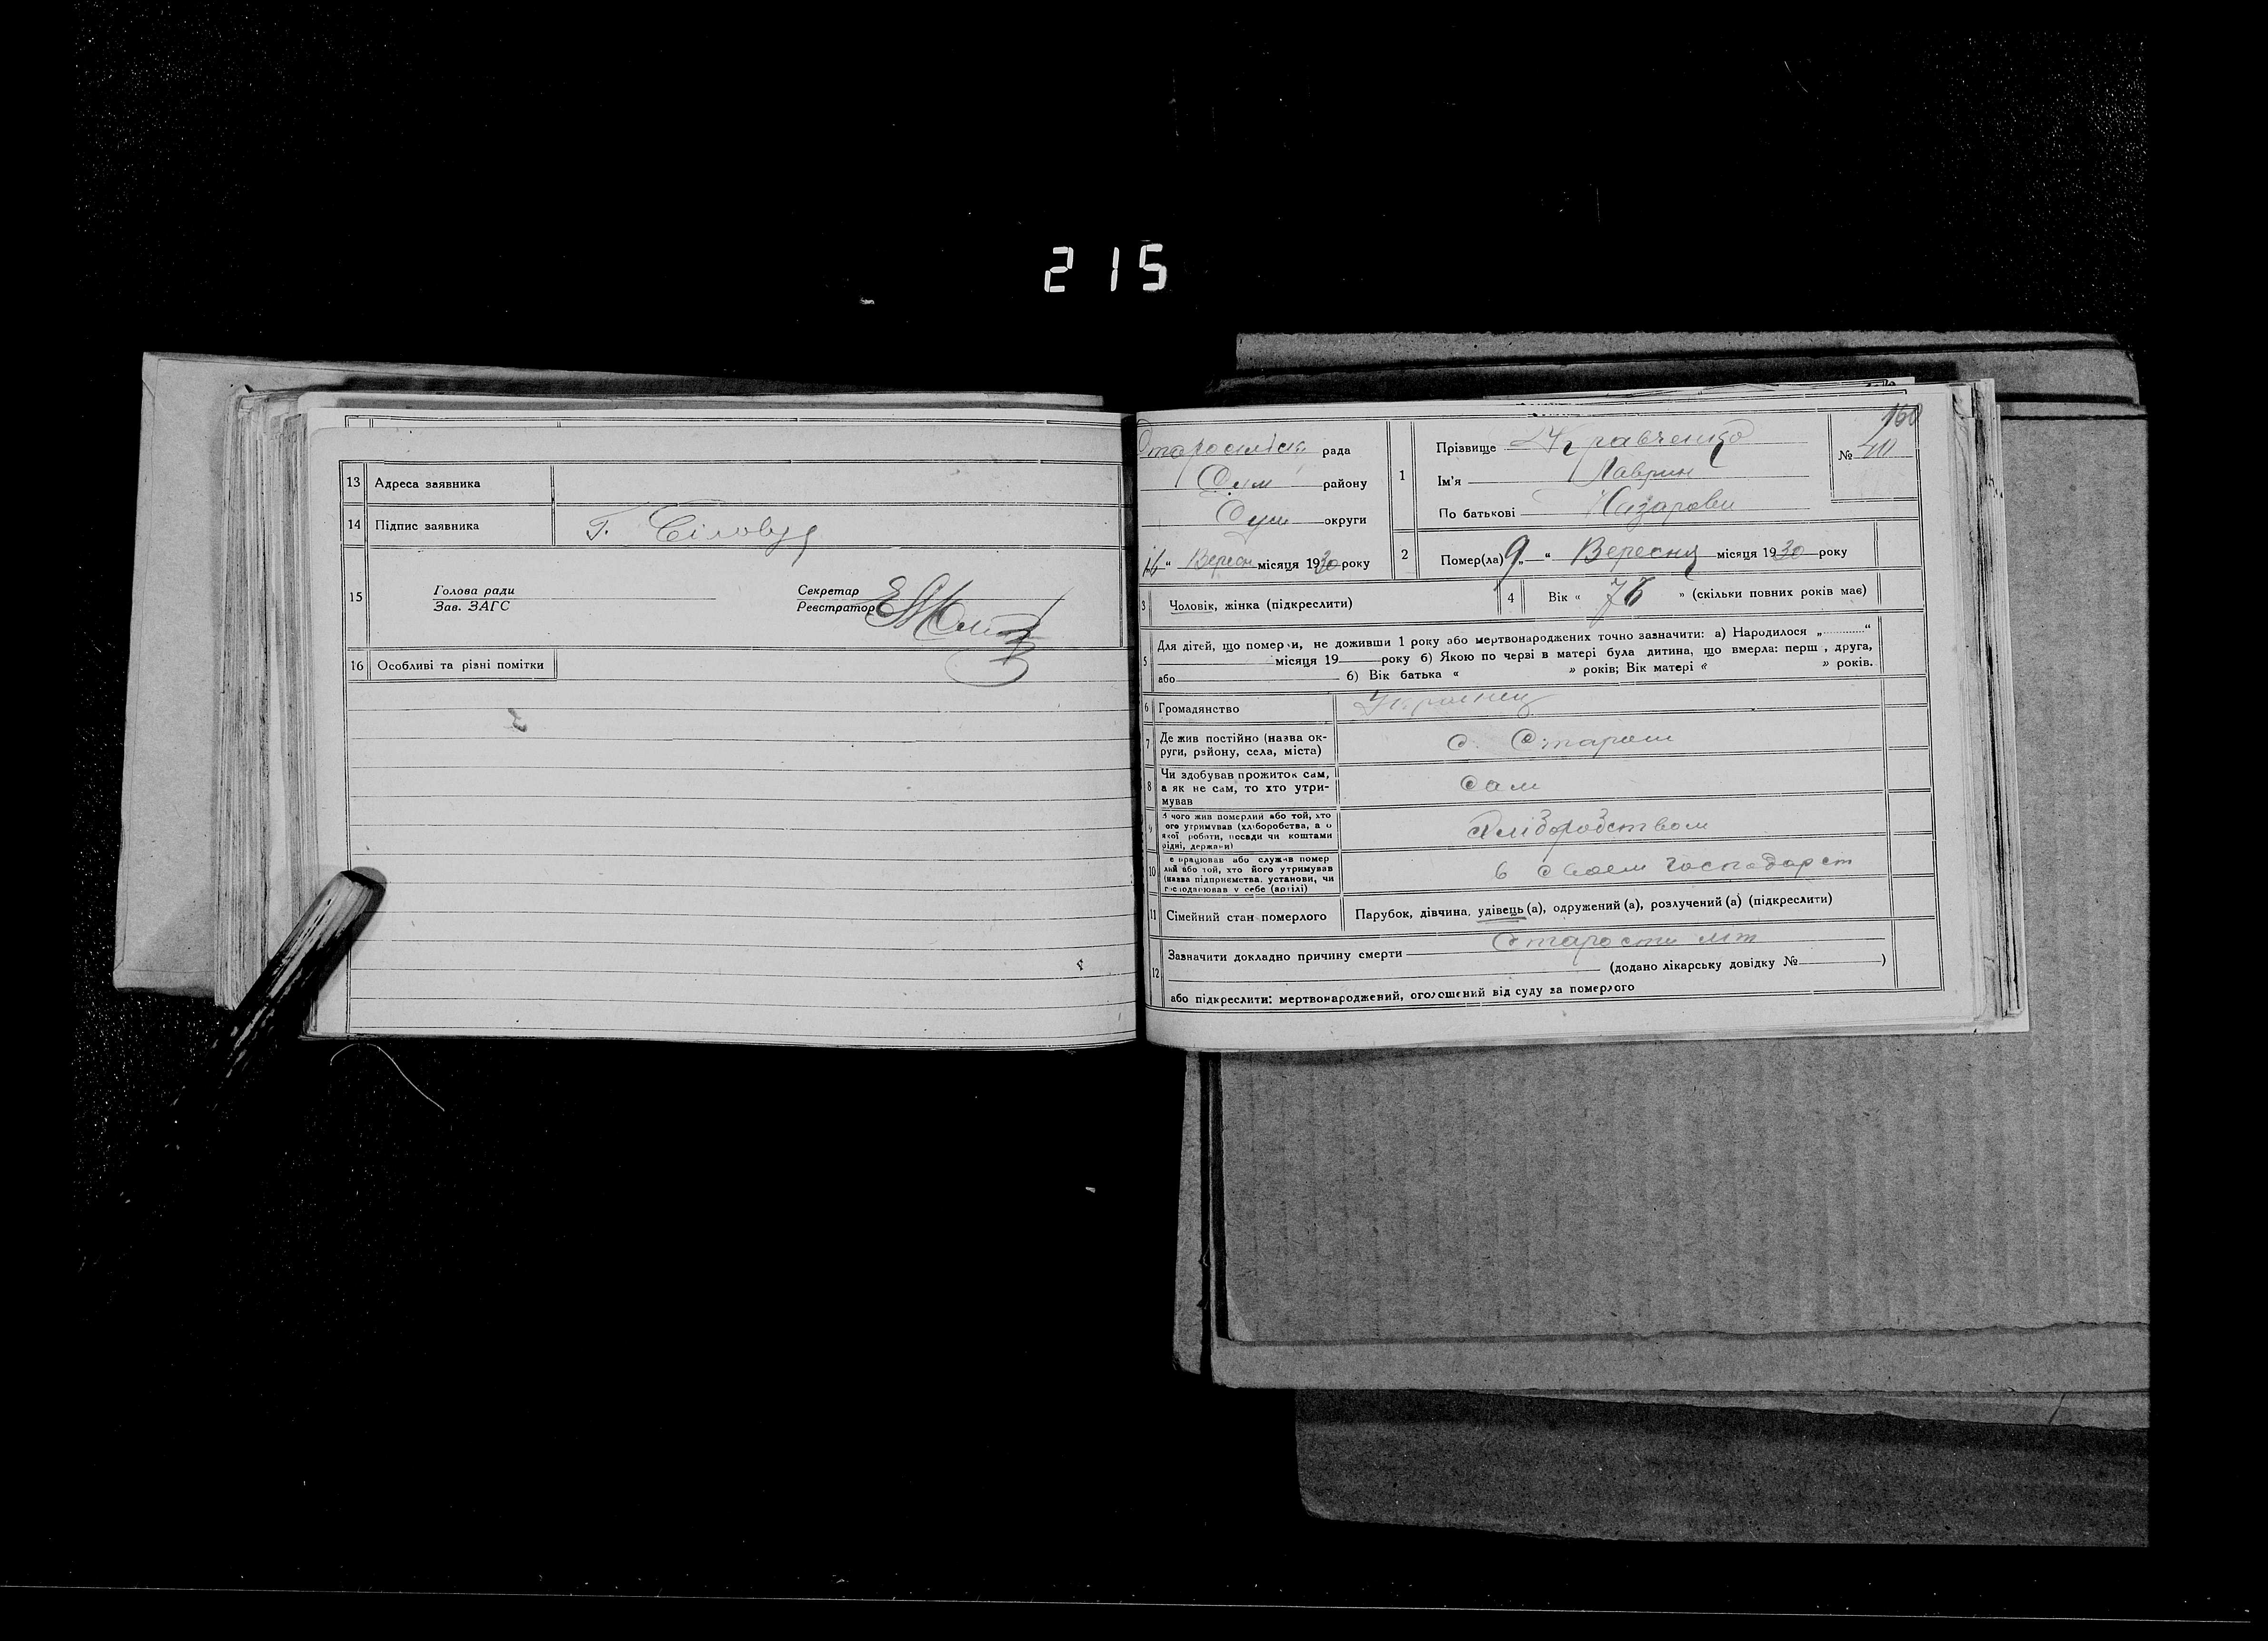 215
13 Адреса заявника
14 Підпис заявника Г. Біловус
15 Голова ради
Зав. ЗАГС
Секретар
Реєстратор
16 Особливі та різні помітки
160
Старосільськ рада
Сум району
Сум округи
16 " Вересн місяця 1930 року
1 Прізвище Кравченко
Ім'я Лаврин
По батькові Назарови
№ 40
2 Помер(ла) 9 „ — “ Вересня місяця 1930 року
3 Чоловік, жінка (підкреслити)
4 Вік « 76 » (скільки повних років має)
5 Для дітей, що померли, не доживши 1 року або мертвонароджених точно зазначити: а) Народилося „..........“
місяця 19 року б) Якою по черві в матері була дитина, що вмерла: перш , друга,
або б) Вік батька « » років; Вік матері « » років.
6 Громадянство Украінец
7 Де жив постійно (назва ок-
руги, району, села, міста) с. Старосіл
8 Чи здобував прожиток сам,
а як не сам, то хто утри-
мував сам
9 З чого жив померлий або той, хто
ого утримував (хліборобства, а о
якої роботи, посади чи коштами
рідні, держави) хліборобством
10 е працював або служив помер
лий або той, хто його утримував
(назва підприємства, установи, чи
господарював у себе (артілі) в своем господарст
11 Сімейний стан померлого Парубок, дівчина, удівець (а), одружений (а), розлучений (а) (підкреслити)
12 Зазначити докладно причину смерти Старости
(додано лікарську довідку № )
або підкреслити: мертвонароджений, оголошений від суду за померлого